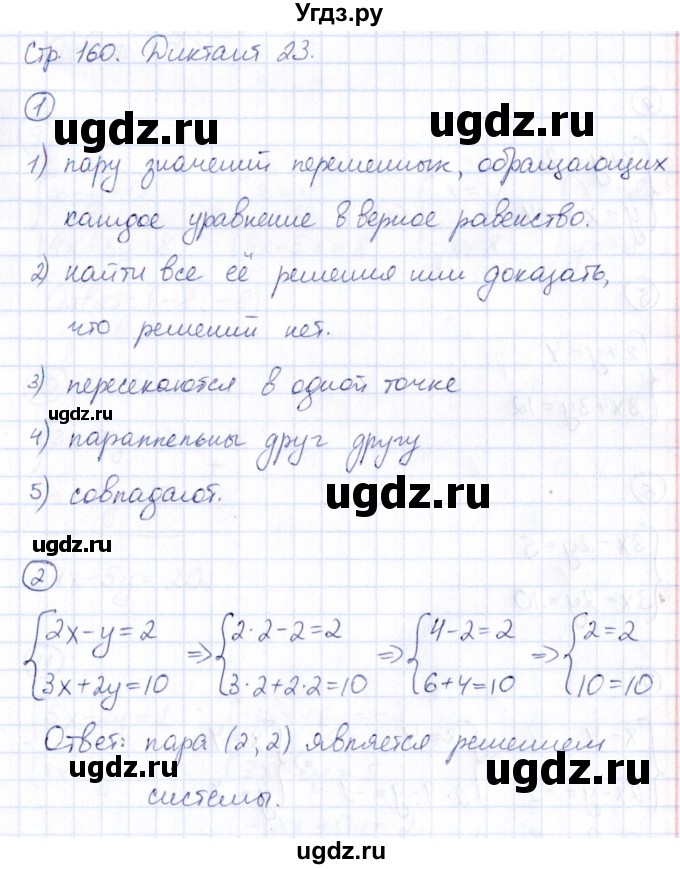 Угдз.ру
Стр. 160. Диктант 23.
1
ugdz.ru ugdz.ru
1) пару значений переменных, обращающих
каждое уравнение в верное равенство.
2) найти все её решения или доказать,
что решений нет.
3) пересекаются в одной точке
ugdz.ru
4) параллельны друг другу
5) совпадают.
ugdz.ru
ugdz.ru
2
{2x-y=2 => {2·2-2=2 => {4-2=2 => {2=2
{3x+2y=10 {3·2+2·2=10 {6+4=10 {10=10
Ответ: пара (2; 2) является решением
ugdz.ru ugdz.ru
системы.
ugdz.ru